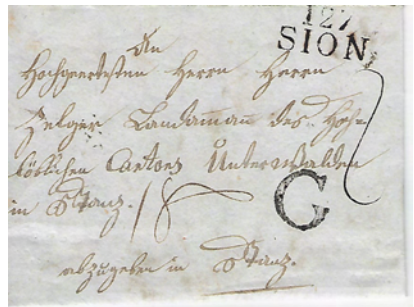 127
SION
An
Hochgeertesten Herrn Herrn
Zelger Landamann des Hoch=
löblichen Cantons Unterwalden
in Stanz.
18
G
abzugeben in Stanz.